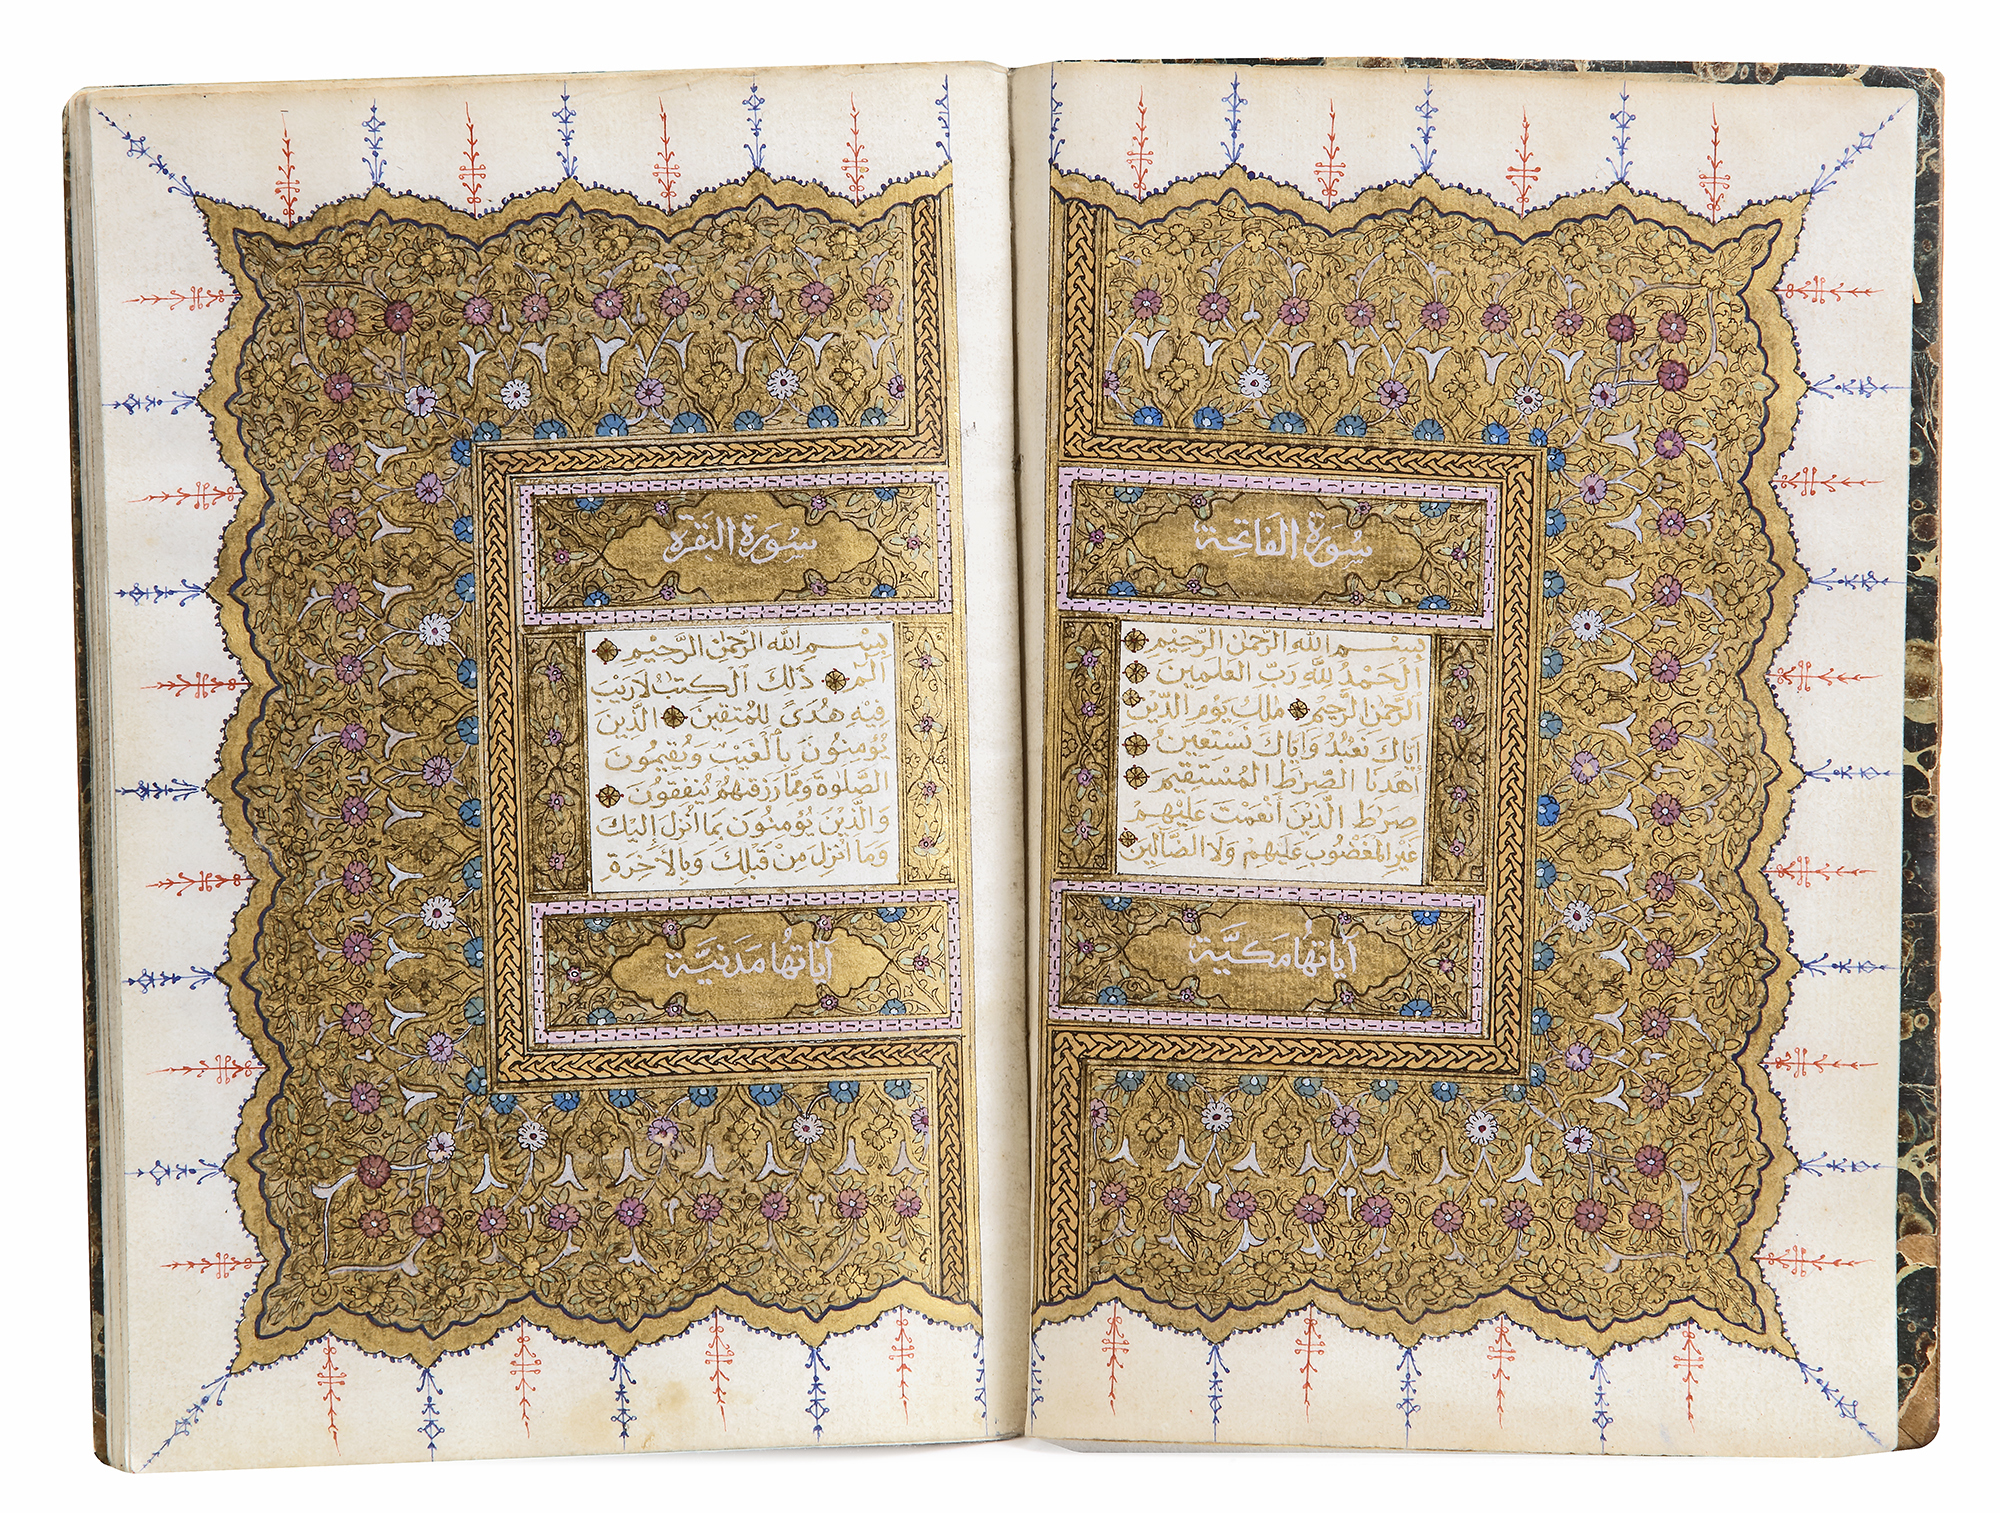 سورة الفاتحة
بسم الله الرحمن الرحيم
الحمد لله رب العلمين
الرحمن الرحيم ملك يوم الدين
اياك نعبد واياك نستعين
اهدنا الصراط المستقيم
صراط الذين انعمت عليهم
غير المغضوب عليهم ولا الضالين
اياتها مكية
سورة البقرة
بسم الله الرحمن الرحيم
الم ذلك الكتب لا ريب
فيه هدى للمتقين الذين
يؤمنون بالغيب ويقيمون
الصلوة ومما رزقنهم ينفقون
والذين يؤمنون بما انزل اليك
وما انزل من قبلك وبالاخرة
اياتها مدنية